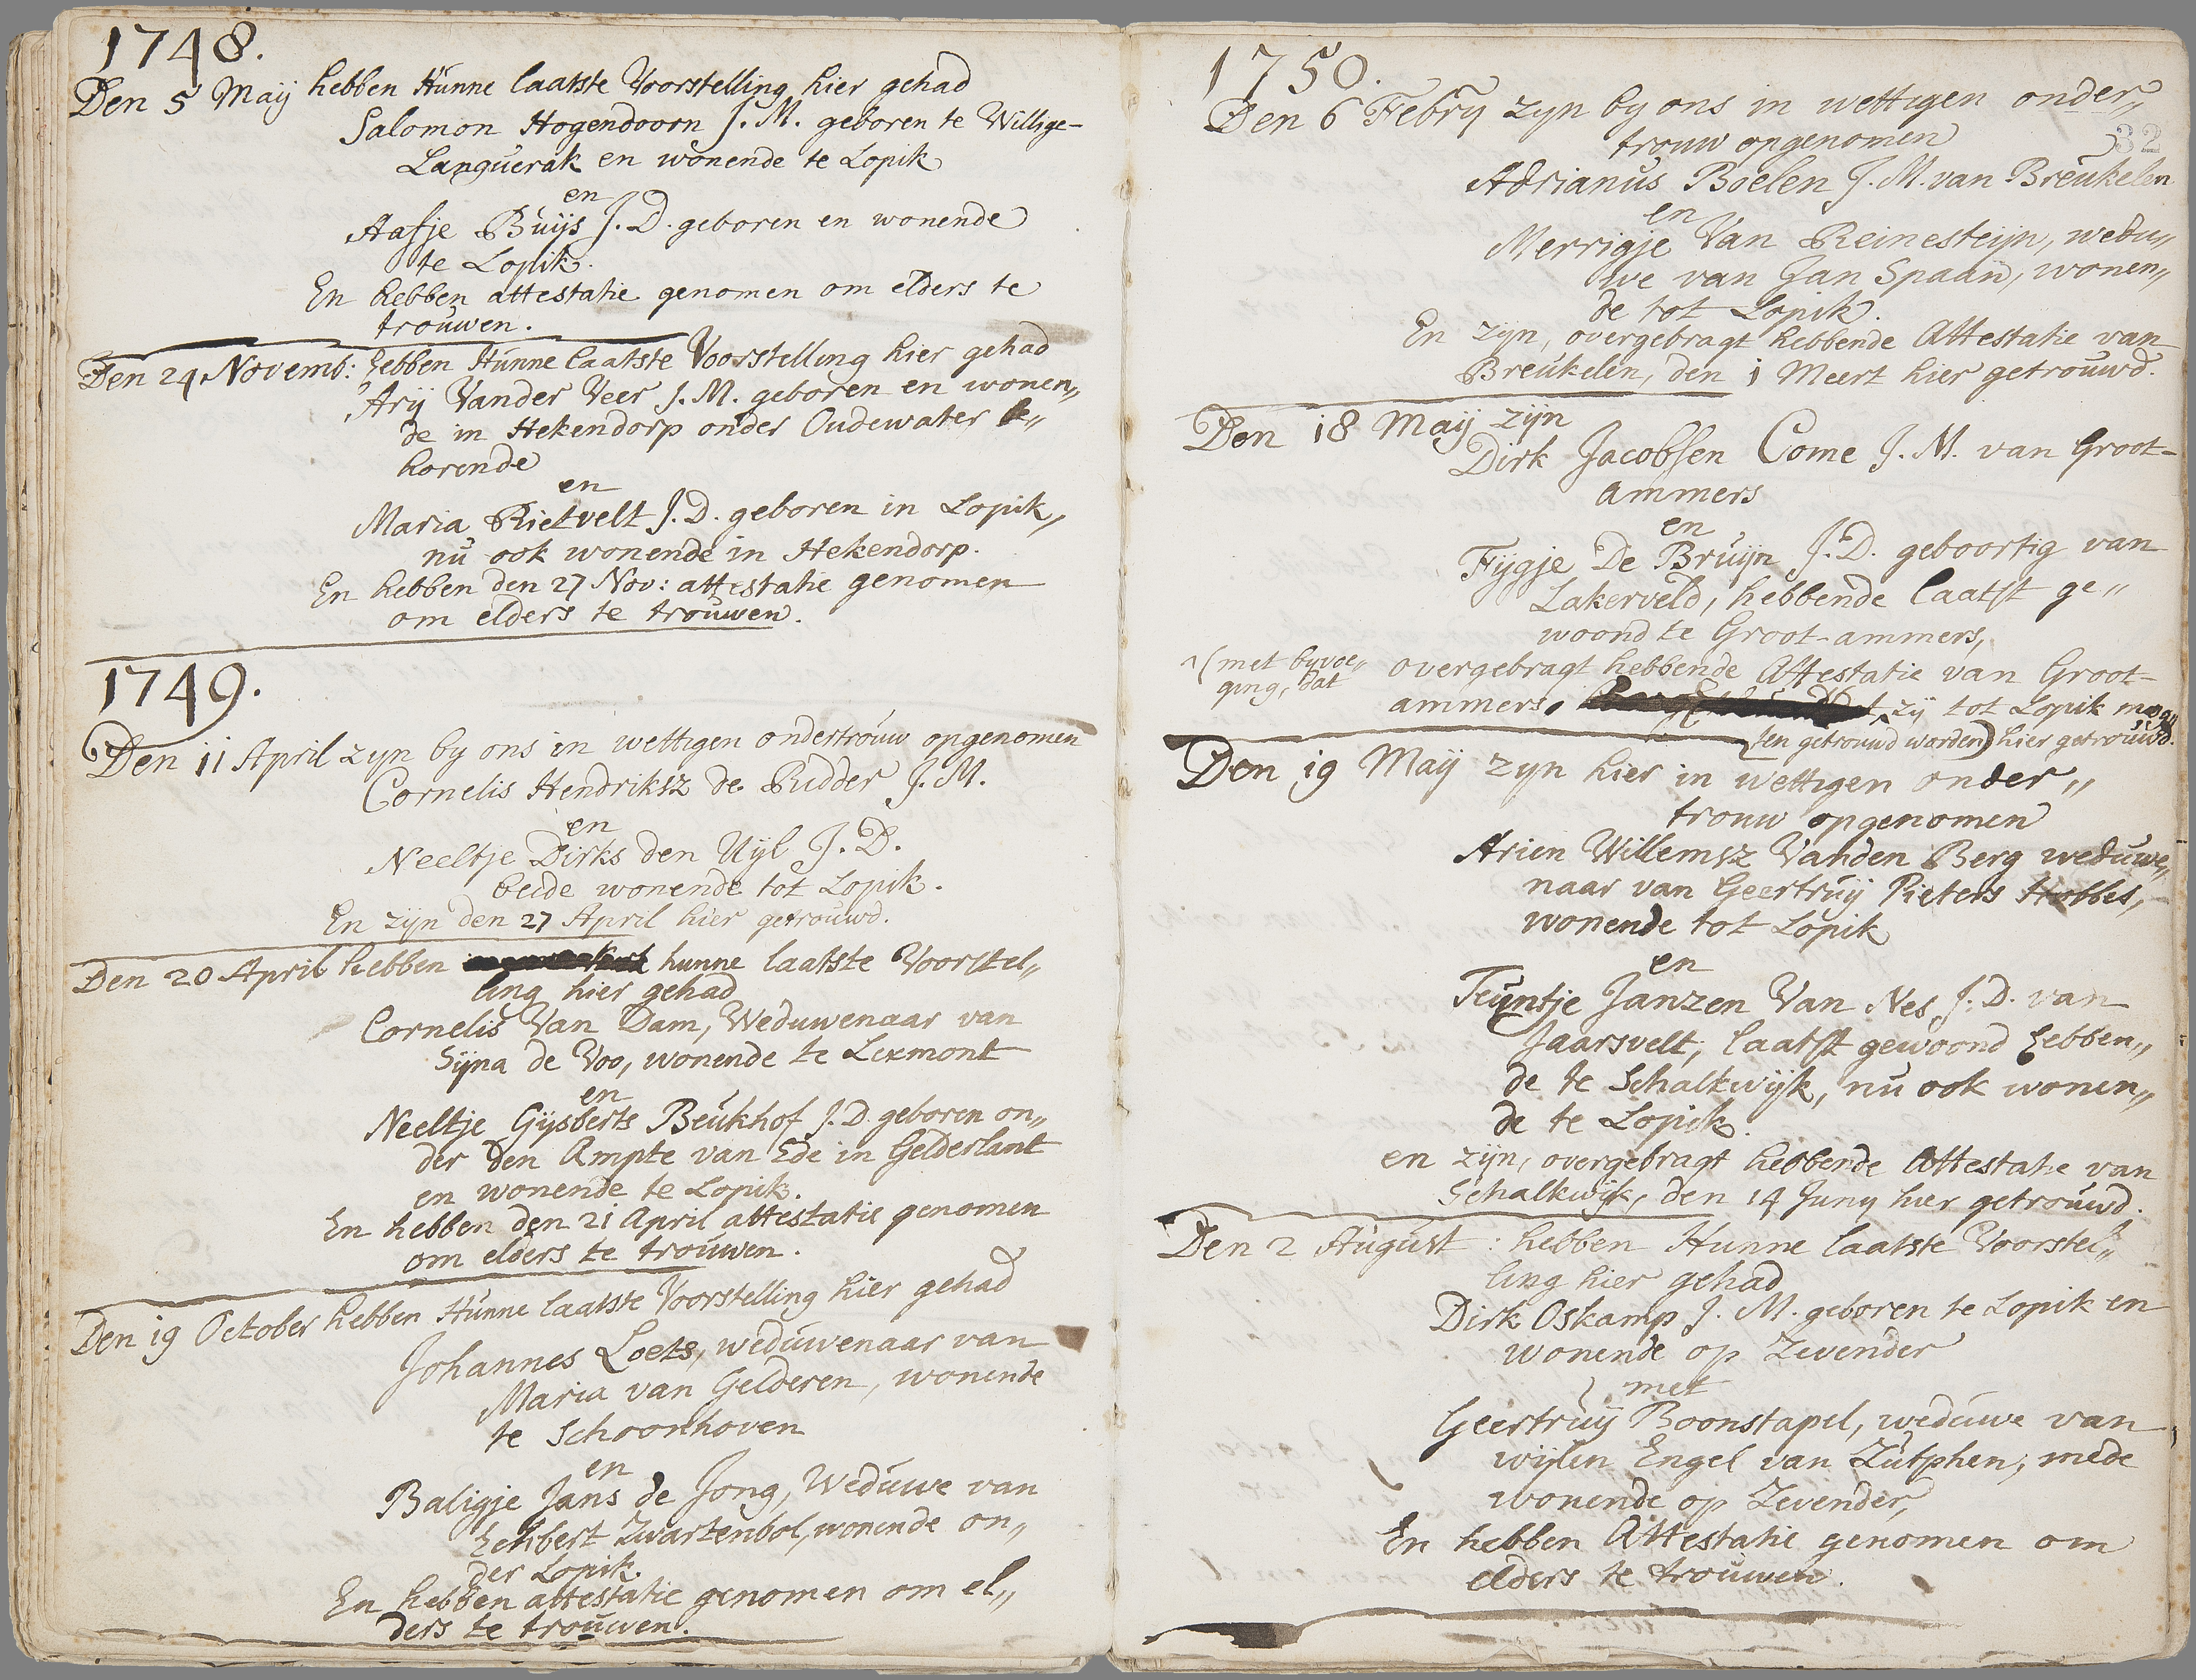 1748.
Den 5 Maij hebben Hunne laatste Voorstelling hier gehad
Salomon Hogendoorn J. M. geboren te Willige-
Languerak en wonende te Lopik
en
Aafje Buijs J. D. geboren en wonende
te Lopik.
En hebben attestatie genomen om elders te
trouwen.
Den 24 Novemb: hebben Hunne laatste Voorstelling hier gehad
Arij Vander Veer J. M. geboren en wonen„
de in Hekendorp onder Oudewater be„
horende
en
Maria Rietvelt J. D. geboren in Lopik,
nu ook wonende in Hekendorp.
En hebben den 27 Nov: attestatie genomen
om elders te trouwen.
1749.
Den 11 April zyn by ons in wettigen ondertrouw opgenomen
Cornelis Hendriksz de Ridder J. M.
en
Neeltje Dirks den Uijl J. D.
beide wonende tot Lopik.
En zijn den 27 April hier getrouwd.
Den 20 April hebben hunne laatste Voorstel„
ling hier gehad
Cornelis Van Dam, Weduwenaar van
Sijna de Voo, wonende te Lexmont
en
Neeltje Gijsberts Beukhof J. D. geboren on„
der den Ampte van Ede in Gelderlant
en wonende te Lopik.
En hebben den 21 April attestatie genomen
om elders te trouwen.
Den 19 October hebben Hunne laatste Voorstelling hier gehad
Johannes Loets, weduwenaar van
Maria van Gelderen, wonende
te Schoonhoven
en
Baligje Jans de Jong, Weduwe van
Echbert Zwartenbol, wonende on„
der Lopik.
En hebben attestatie genomen om el„
ders te trouwen.
1750.
Den 6 Febry zyn by ons in wettigen onder„
trouw opgenomen
32
Adrianus Boelen J. M. van Breukelen
en
Merrigje Van Reinesteijn, wedu„
we van Jan Spaan, wonen„
de tot Lopik.
En zijn, overgebragt hebbende Attestatie van
Breukelen, den 1 Meert hier getrouwd.
Den 18 Maij zijn
Dirk Jacobsen Come J. M. van Groot-
ammers
en
Fijgje De Bruijn J. D. geboortig van
Lakerveld, hebbende laatst ge„
woond te Groot-ammers,
overgebragt hebbende Attestatie van Groot-
(met byvoe„
ging, dat
ammers, zij tot Lopik mog
ten getrouwd worden) hier getrouwd.
Den 19 Maij zyn hier in wettigen onder„
trouw opgenomen
Arien Willemsz Vanden Berg weduwe„
naar van Geertruij Pieters Hobbes,
wonende tot Lopik
en
Teuntje Janzen Van Nes J. D. van
Jaarsvelt, laatst gewoond hebben„
de te Schalkwijk, nu ook wonen„
de te Lopik.
en zijn, overgebragt hebbende Attestatie van
Schalkwijk, den 14 Juny hier getrouwd.
Den 2 August: hebben Hunne laatste Voorstel„
ling hier gehad
Dirk Oskamp J. M. geboren te Lopik en
wonende op Zevender
met
Geertruij Boonstapel, weduwe van
wijlen Engel van Zutphen, mede
wonende op Zevender,
En hebben Attestatie genomen om
elders te trouwen.